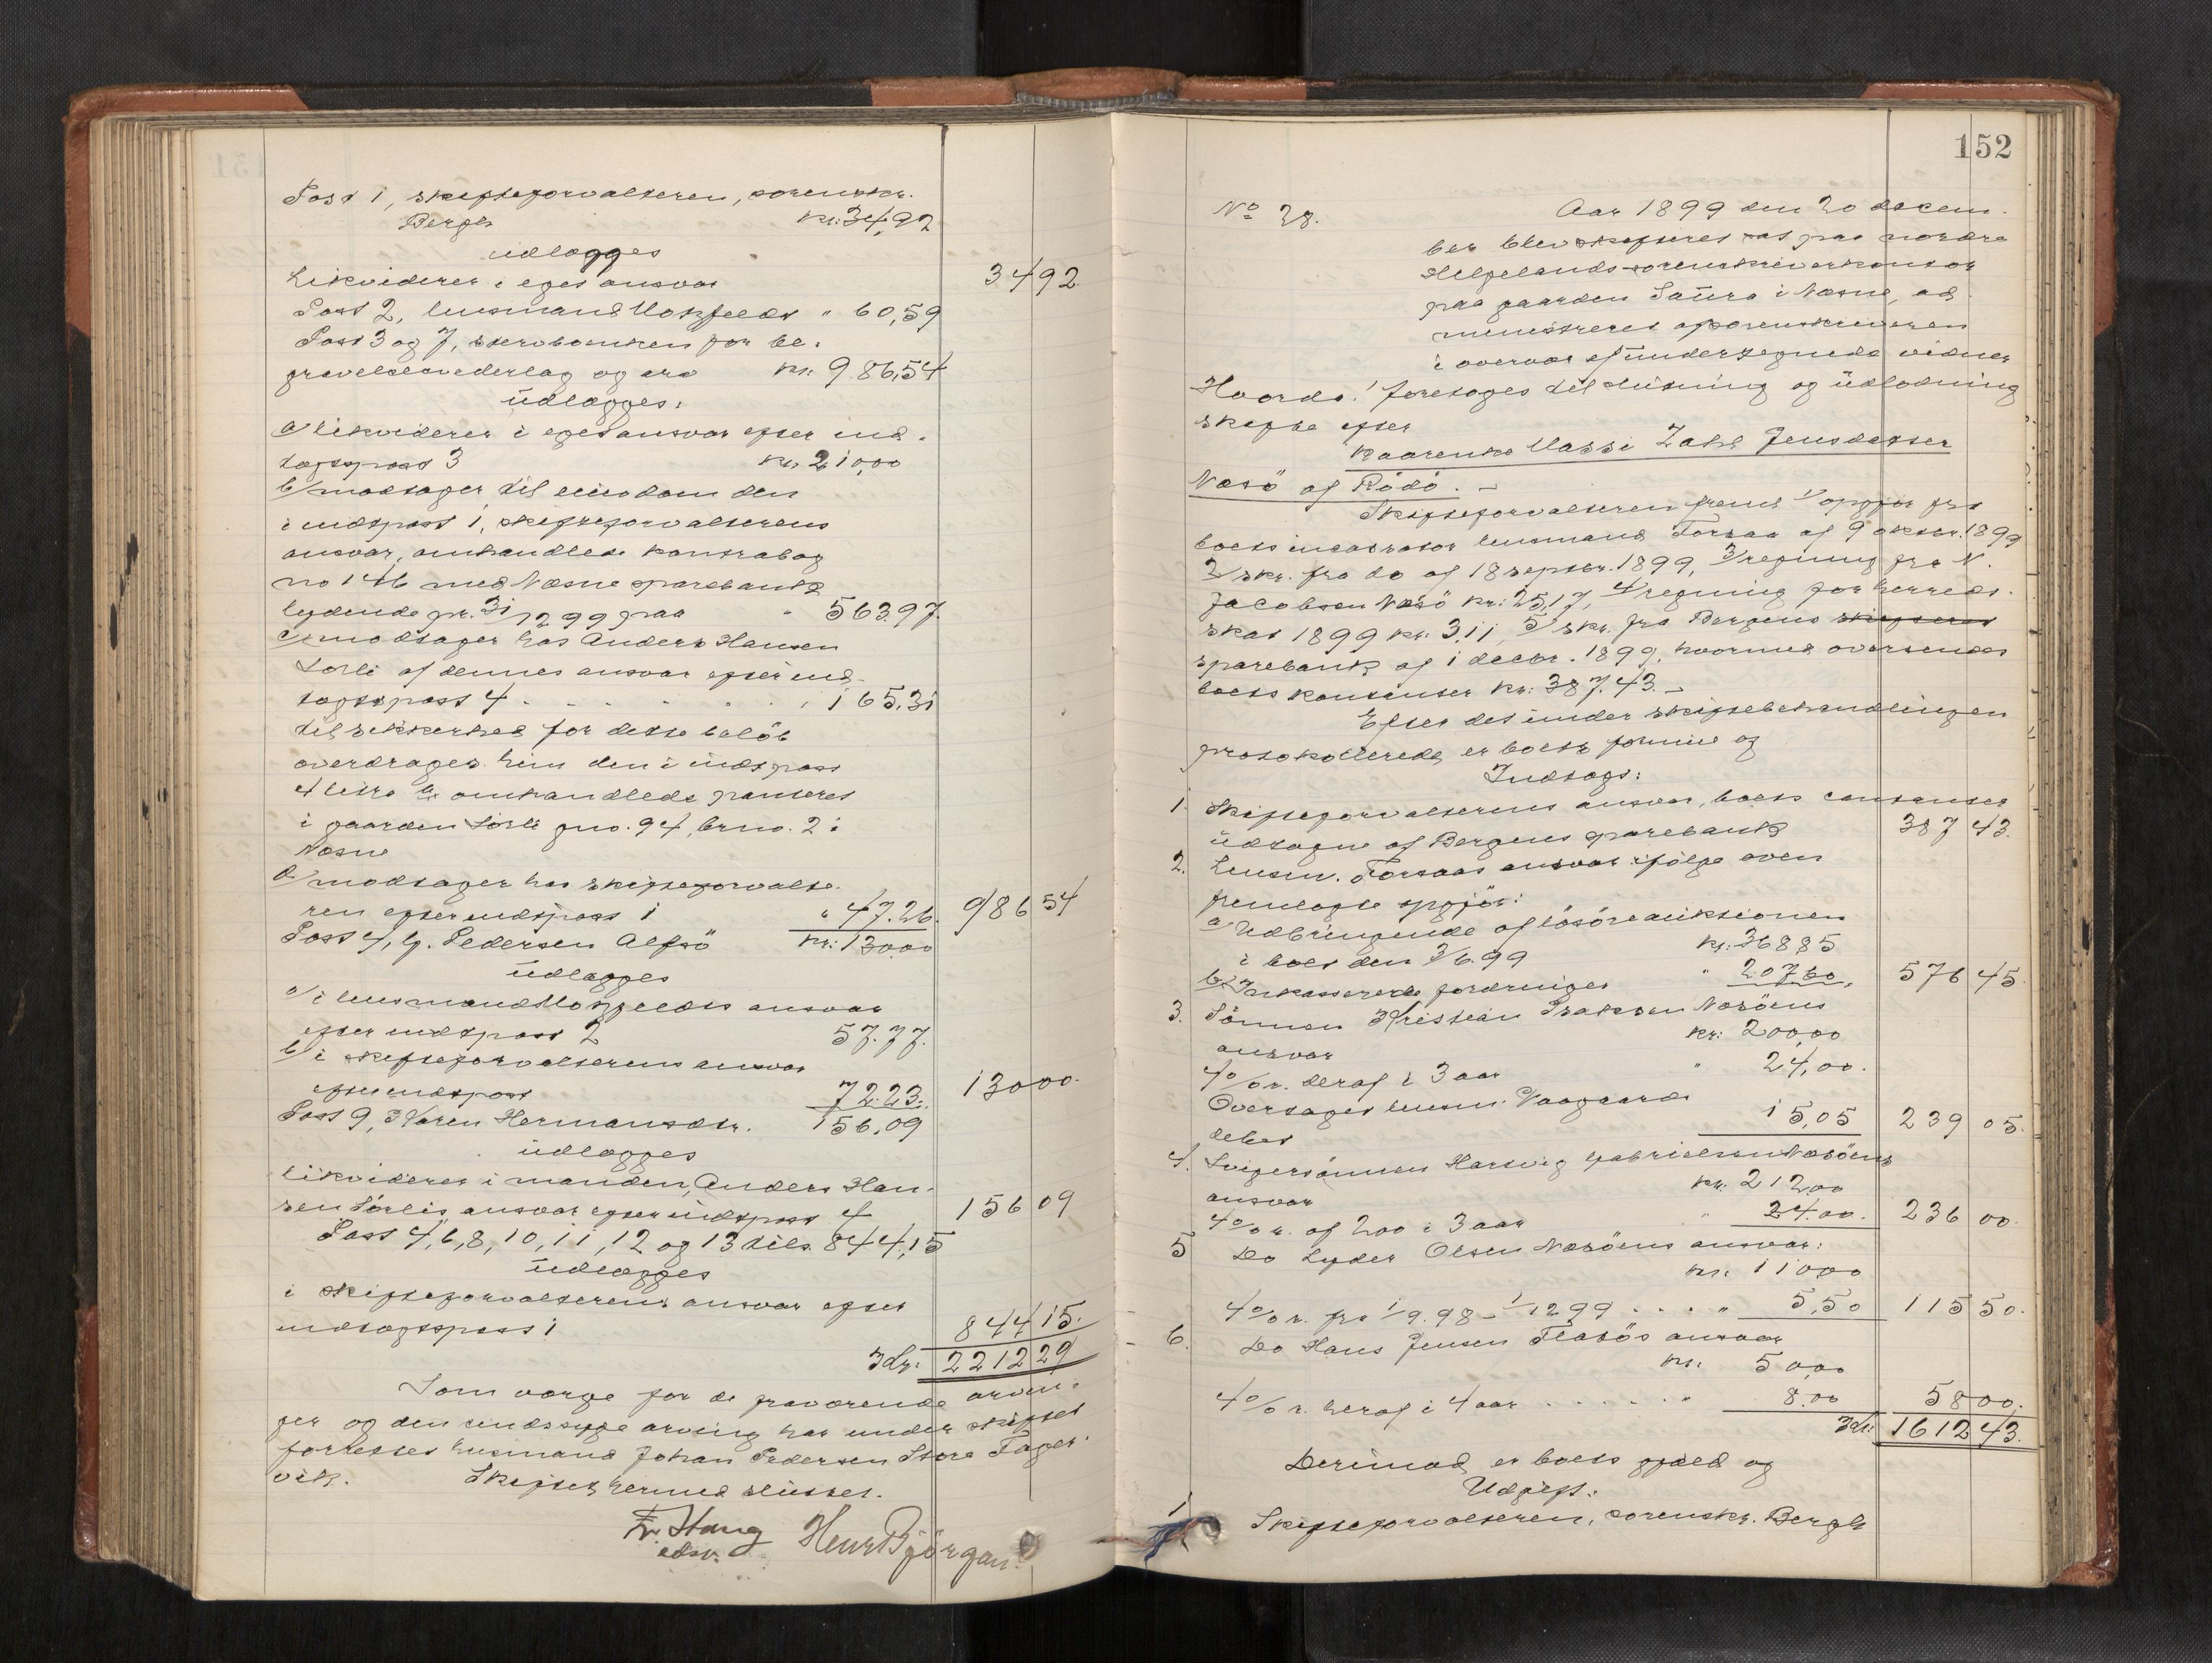 Post 1, skifteforvalteren, sorenskr.
Bergh kr: 34,92
udlægges
Likviderer i eget ansvar 34 92.
Post 2, lensmand Motzfeldt " 60,59
Post 3 og 7, skrobanken for be-
gravelsesvederlag og arv kr: 986,54
udlægges:
a/ likviderer i eget ansvar efter ind-
tægtspost 3 kr: 210,00
b/ modtager til eiendom den
i indtpost 1, skifteforvalterens
ansvar, omhandlede kontrabog
no 146 med Næsne sparebank
lydende pr. 31/12 99 paa " 563.97.
c/ modtager hos Anders Hansen
Sørli af dennes ansvar efter ind-
tægtspost 4 . . . . . . 165,31
til sikkerhed for dette beløb
overdrages ham den i indtpost
4 litra a omhandlede panteret
i gaarden Sørli gno. 94, brno. 2 i
Næsne
d/ modtager hos skifteforvalte-
ren efter indtpost 1 " 47.26. 986 54
Post 4, G. Pedersen Alfsø kr: 130.00
udlægges
a/ i lensmand Motzfeldts ansvar
efter indtpost 2 57.77.
b/ i skifteforvalterens ansvar
efter indtpost 72.23. 130 00.
Post 9, Karen Hermansdtr. 156.09
udlægges
likvideres i manden, Anders Han-
sen Sørlis ansvar efter indtpost 4 156 09
Post 4, 6, 8, 10, 11, 12 og 13 tils. 844,15
udlægges
i skifteforvalterens ansvar efter
indtægtspost 1 844 15.
Idr: 2212 29
Som værge for de fraværende arvin-
ger og den sindssyge arving har under skiftet
forrettet husmand Johan Pedersen Store Tager-
vik. Skiftet hermed sluttet.
Fr. Stang Henr Bjørgan
edsv.
152
No 28. Aar 1899 den 20 decem-
ber blev skifteret sat paa nordre
Helgelands sorenskriverkontor
paa gaarden Saura i Næsne, ad-
ministreret af sorenskriveren
i overvær af undertegnede vidner
Hvorda! foretoges til slutning og udlodning
skifte efter
Kaarenka Massi Zahl Jensdatter
Næsø af Rødø. -
Skifteforvalteren freml 1/ opgjør fra
boets incassator lensmand Forsaa af 9 oktbr. 1899
2/ skr. fra do af 18 septbr. 1899, 3/ regning fra N.
Jacobsen Næsø kr: 25,17, 4/ regning for herreds-
skat 1899 kr. 3,11, 5/ skr. fra Bergens skifteret
sparebank af 1 decbr. 1899, hvormed oversendes
boets kontanter kr: 387.43. -
Efter det under skiftebehandlingen
protokollerede er boets formue og
Indtægt:
1. Skifteforvalterens ansvar, boets contanter
udtagne af Bergens sparebank 387 43.
2. Lensm. Forsaas ansvar ifølge oven
fremlagte opgjør:
a/ Udbringende af løsøreauktionen
i boet den 3/6. 99 kr: 368 85
b/ Inkasserede fordringer " 207.60. 576 45
3. Sønnen Kristian Isaksen Næsøens
ansvar kr: 200,00
4 % r. deraf i 3 aar " 24,00.
Overtaget lensm. Vaagaards
debet 15,05 239 05.
4. Svigersønnen Hartvig Gabrielsen Næsøens
ansvar kr. 212,00
4 % r. af 200 i 3 aar " 24.00. 236 00.
5 Do Lyder Olsen Næsøens ansvar:
kr. 110,00
4 % r. fra 1/9. 98 - 1/12 99 . . . . " 5,50 115 50.
6. Do Hans Jensen Flatøs ansvar
kr: 50,00
4 % r. heraf i 4 aar . . . . . " 8.00 58 00.
Idr: 1612 43.
Derimod er boets gjæld og
Udgift:
1/ Skifteforvalteren, sorenskr. Bergh